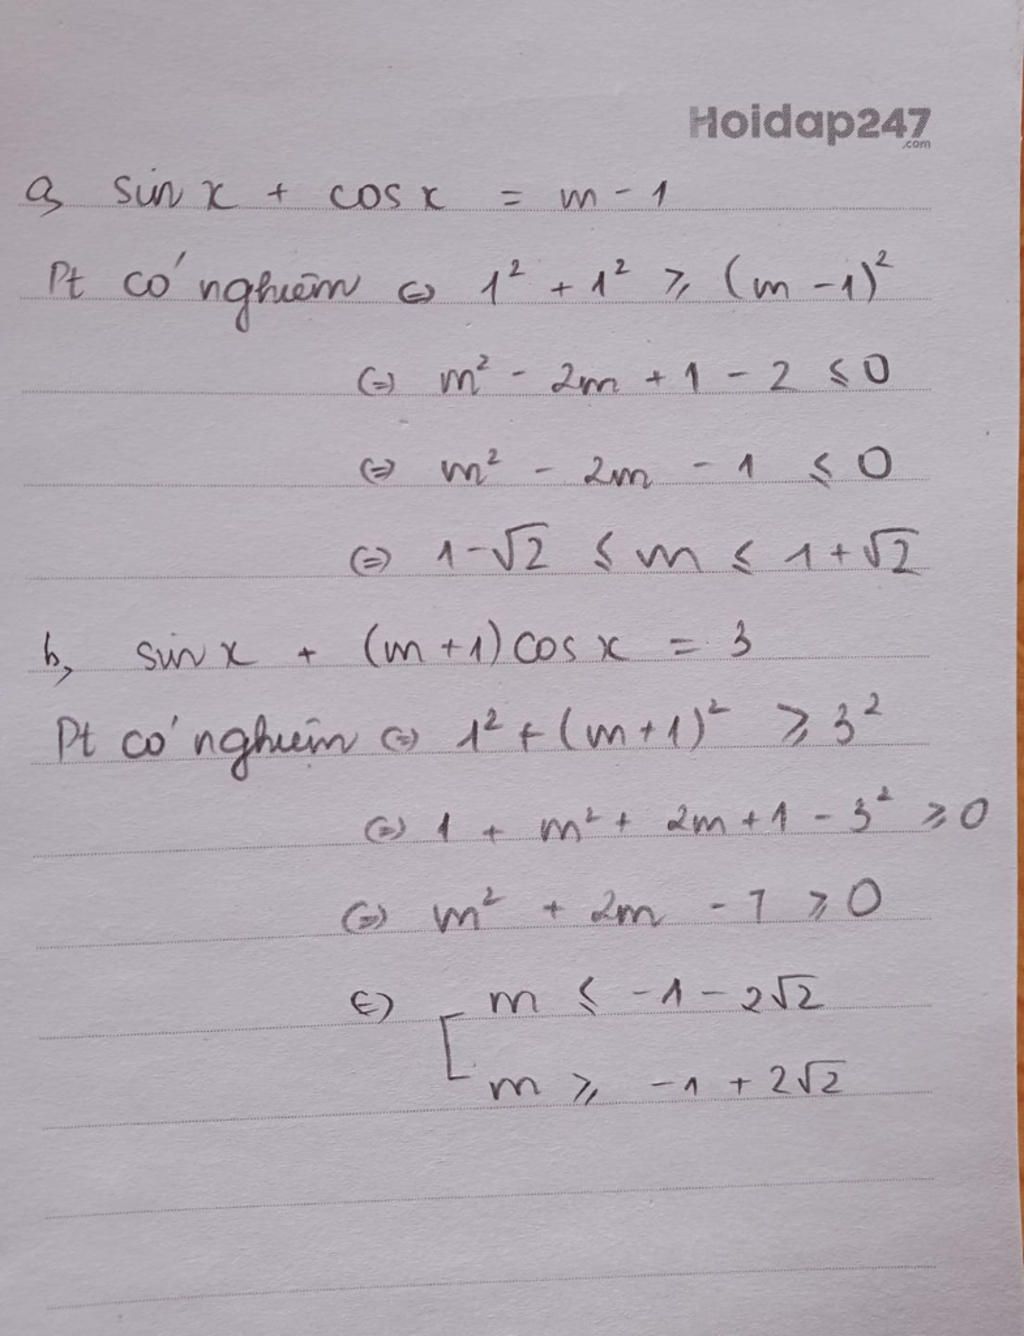 Hoidap247
.com
a, sin x + cos x = m - 1
Pt có nghiệm ⇔ 1² + 1² ⩾ (m - 1)²
⇔ m² - 2m + 1 - 2 ⩽ 0
⇔ m² - 2m - 1 ⩽ 0
⇔ 1 - √2 ⩽ m ⩽ 1 + √2
b, sin x + (m + 1) cos x = 3
Pt có nghiệm ⇔ 1² + (m + 1)² ⩾ 3²
⇔ 1 + m² + 2m + 1 - 3² ⩾ 0
⇔ m² + 2m - 7 ⩾ 0
⇔ [ m ⩽ -1 - 2√2
m ⩾ -1 + 2√2